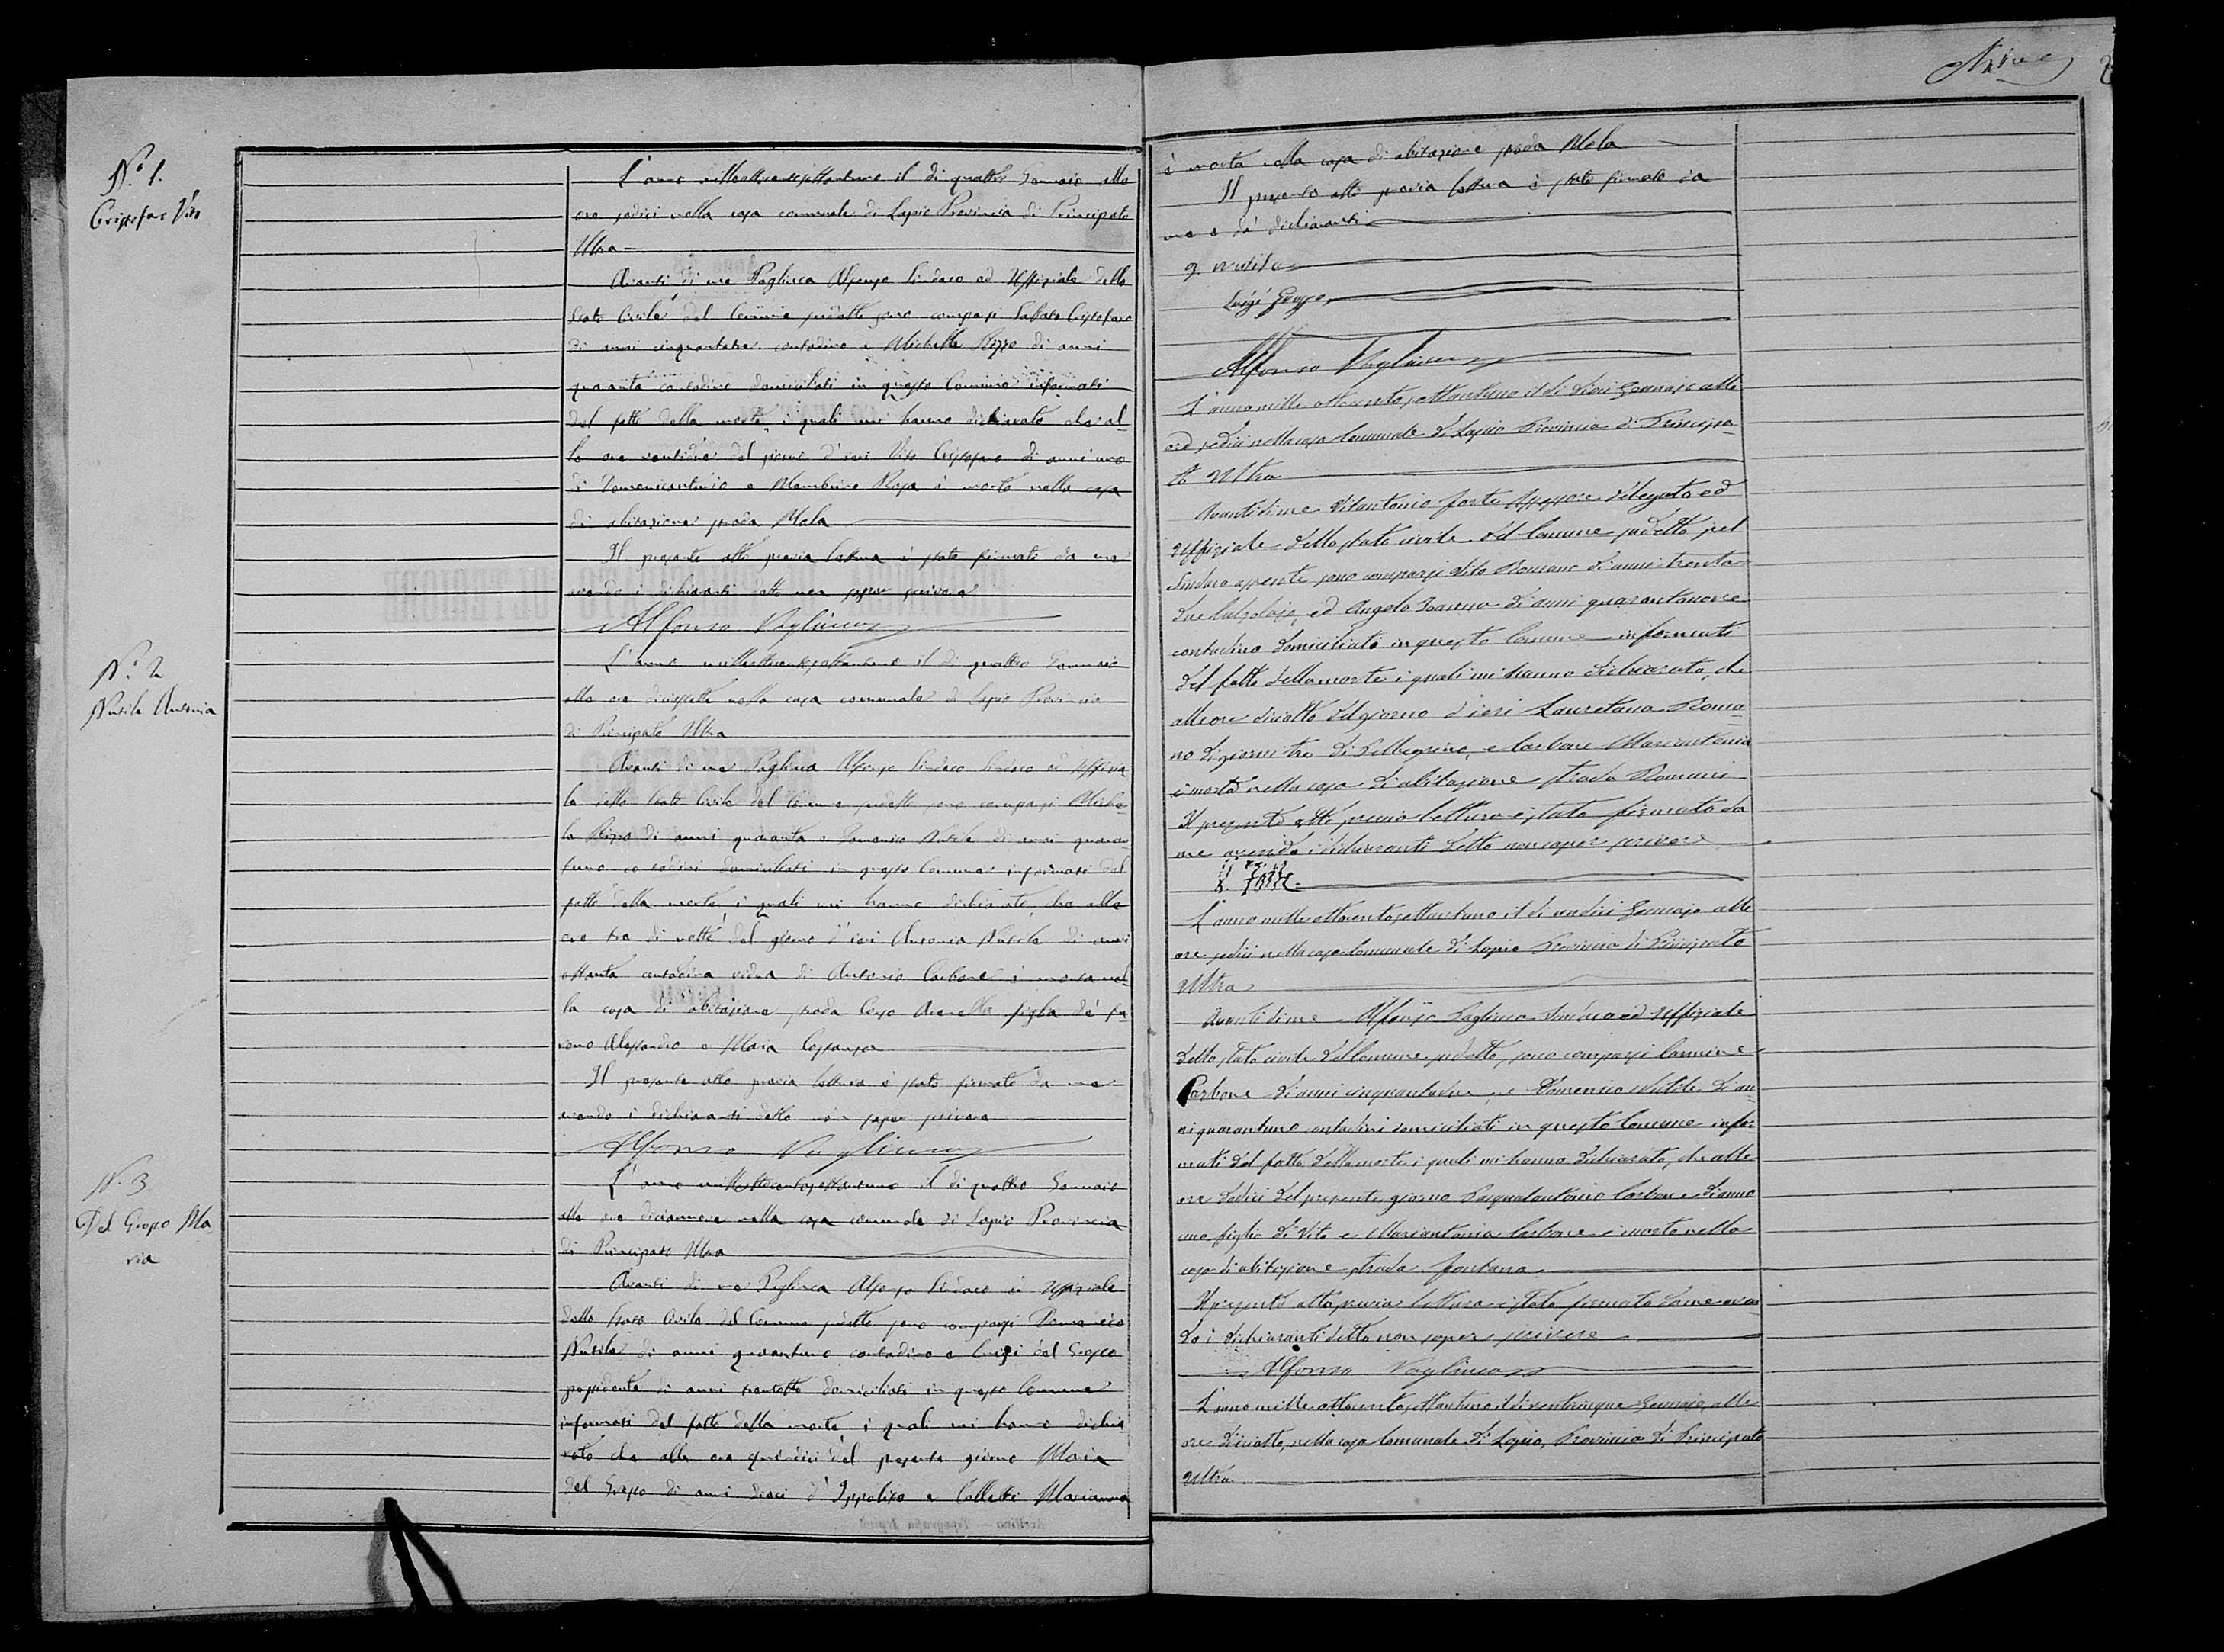 N.° 1.
Crisofaro Vito
L'anno milleottocentosettantuno il dì quattro Gennaio alle
ore sedici nella casa comunale di Lapio Provincia di Principato
Ultra
Avanti di me Pagliuca Alfonso Sindaco ed Uffiziale dello
Stato Civile del Comune sudetto sono comparsi Sabato Crisofaro
di anni cinquantatre contadino e Michele Rizzo di anni
quaranta contadino domiciliati in questo Comune informati
del fatto della morte, i quali mi hanno dichiarato che al-
le ore ventidue del giorno d'ieri Vito Crisofaro di anni uno
di Domenicantonio e Rosa è morto nella casa
di abitazione strada Mola
Il presente atto previa lettura è stato firmato da me
avendo i dichiaranti detto non saper scrivere
Alfonso Pagliuca
N.° 2
Nutile Antonia
L'anno milleottocentosettantuno il dì quattro Gennaio
alle ore diciassette nella casa comunale di Lapio Provincia
di Principato Ultra
Avanti di me Pagliuca Alfonso Sindaco Sindaco ed Uffizia
le dello Stato Civile del Comune sudetto sono comparsi Miche
le Rizzo di anni quaranta e Domenico Nutile di anni quaran
tuno contadini domiciliati in questo Comune informati del
fatto della morte, i quali mi hanno dichiarato, che alle
ore tre di notte del giorno d'ieri Antonia Nutile di anni
ottanta contadina vedova di Antonio Carbone è morta nel
la casa di abitazione strada Figlia de' fu
rono Alessandro e Maria Costanza
Il presente atto previa lettura è stato firmato da me
avendo i dichiaranti detto non saper scrivere
Alfonso Pagliuca
N. 3
Del Grosso Ma
ria
L'anno milleottocentosettantuno il dì quattro Gennaio
alle ore diciannove nella casa comunale di Lapio Provincia
di Principato Ultra
Avanti di me Pagliuca Alfonso Sindaco ed Uffiziale
dello Stato Civile del Comune sudetto sono comparsi Domenico
Nutile di anni quarantuno contadino e Luigi del Grosso
possidente di anni trentotto domiciliati in questo Comune
informati del fatto della morte, i quali mi hanno dichia
rato che alle ore quindici del presente giorno Maria
del Grosso di anni dieci d'Ippolito e Colletti Marianna
è morta nella casa di abitazione strada Mola
Il presente atto previa lettura è stato firmato da
me e da' dichiaranti
Luigi Grosso
Alfonso Pagliuca
L'anno mille ottocento settantuno il dì dieci Gennajo alle
ore sedici nella casa Comunale di Lapio Provincia di Principa-
to Ultra
Avanti di me Vitantonio Forte Assessore delegato ed
Uffiziale dello stato civile del Comune sudetto pel
Sindaco assente sono comparsi Vito Romano di anni trenta
due calzolajo, ed Angelo Joanna di anni quarantanove
contadino domiciliati in questo Comune informati
del fatto della morte i quali mi hanno dichiarato, che
alle ore diciotto del giorno d'ieri Lauretana Roma-
no di giorni tre di Pellegrino, e Carbone Mariantonia
è morta nella casa di abitazione strada Romani
Il presente atto previo lettura è stato firmato da
me avendo i dichiaranti detto non saper scrivere
V. Forte
L'anno mille ottocento settantuno il dì undici Gennajo alle
ore sedici nella casa Comunale di Lapio Provincia di Principato
Ultra
Avanti di me Alfonso Pagliuca Sindaco ed Uffiziale
dello stato civile del Comune sudetto, sono comparsi Carmine
Carbone di anni cinquantadue, e Domenico Nutile di an
ni quarantuno contadini domiciliati in questo Comune infor
mati del fatto della morte i quali mi hanno dichiarato, che alle
ore dodici del presente giorno Pasqualantonio Carbone di anno
uno figlio di Vito e Mariantonia Carbone è morto nella
casa di abitazione strada Fontana
Il presente atto previa lettura è stato firmato da me aven
do i dichiaranti detto non saper scrivere
Alfonso Pagliuca
L'anno mille ottocento settantuno il dì venticinque Gennajo, alle
ore diciotto, nella casa Comunale di Lapio, Provincia di Principato
Ultra